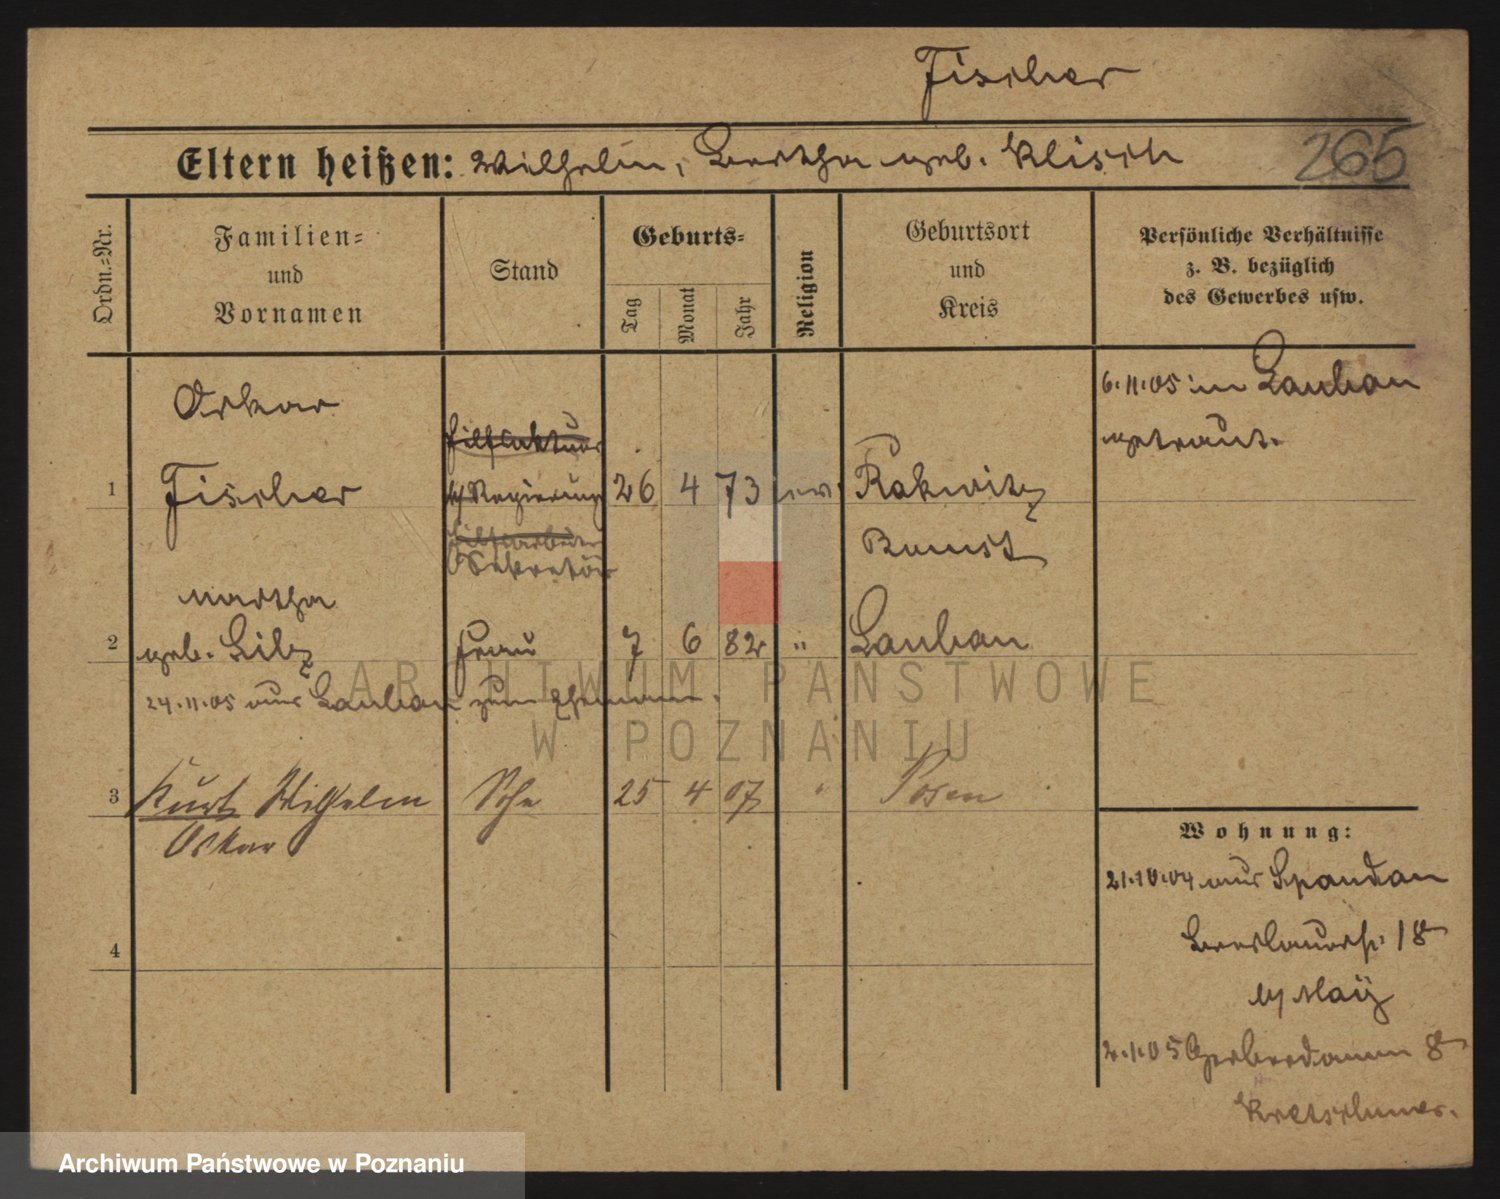 Fischer
Eltern heißen: Wilhelm, Bertha geb. Klisch
265
Ordn.=Nr.
Familien=
und
Vornamen
Stand
Geburts=
Tag
Monat
Jahr
Religion
Geburtsort
und
Kreis
Persönliche Verhältnisse
z. B. bezüglich
des Gewerbes usw.
6.11.05 in Lauban
getraut.
Oskar
Hilfsaktuar
1 Fischer Regierungs 26 4 73 ev. Rakwitz
Hilfsarbeiter Bomst
Sekretär
Martha
2 geb. Lib Frau 7 6 82 " Lauban
24.11.05 aus Lauban zum Ehemann.
3 Kurt Wilhelm Sohn 25 4 07 " Posen
Oskar
4
Wohnung:
21.10.04 aus Spandau
Breslauerstr. 18
b/ May
2.1.05 Gerberdamm 8
Kretschmer.
ARCHIWUM PAŃSTWOWE
W POZNANIU
Archiwum Państwowe w Poznaniu